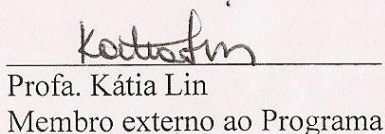 Katia Lin
Profa. Kátia Lin
Membro externo ao Programa